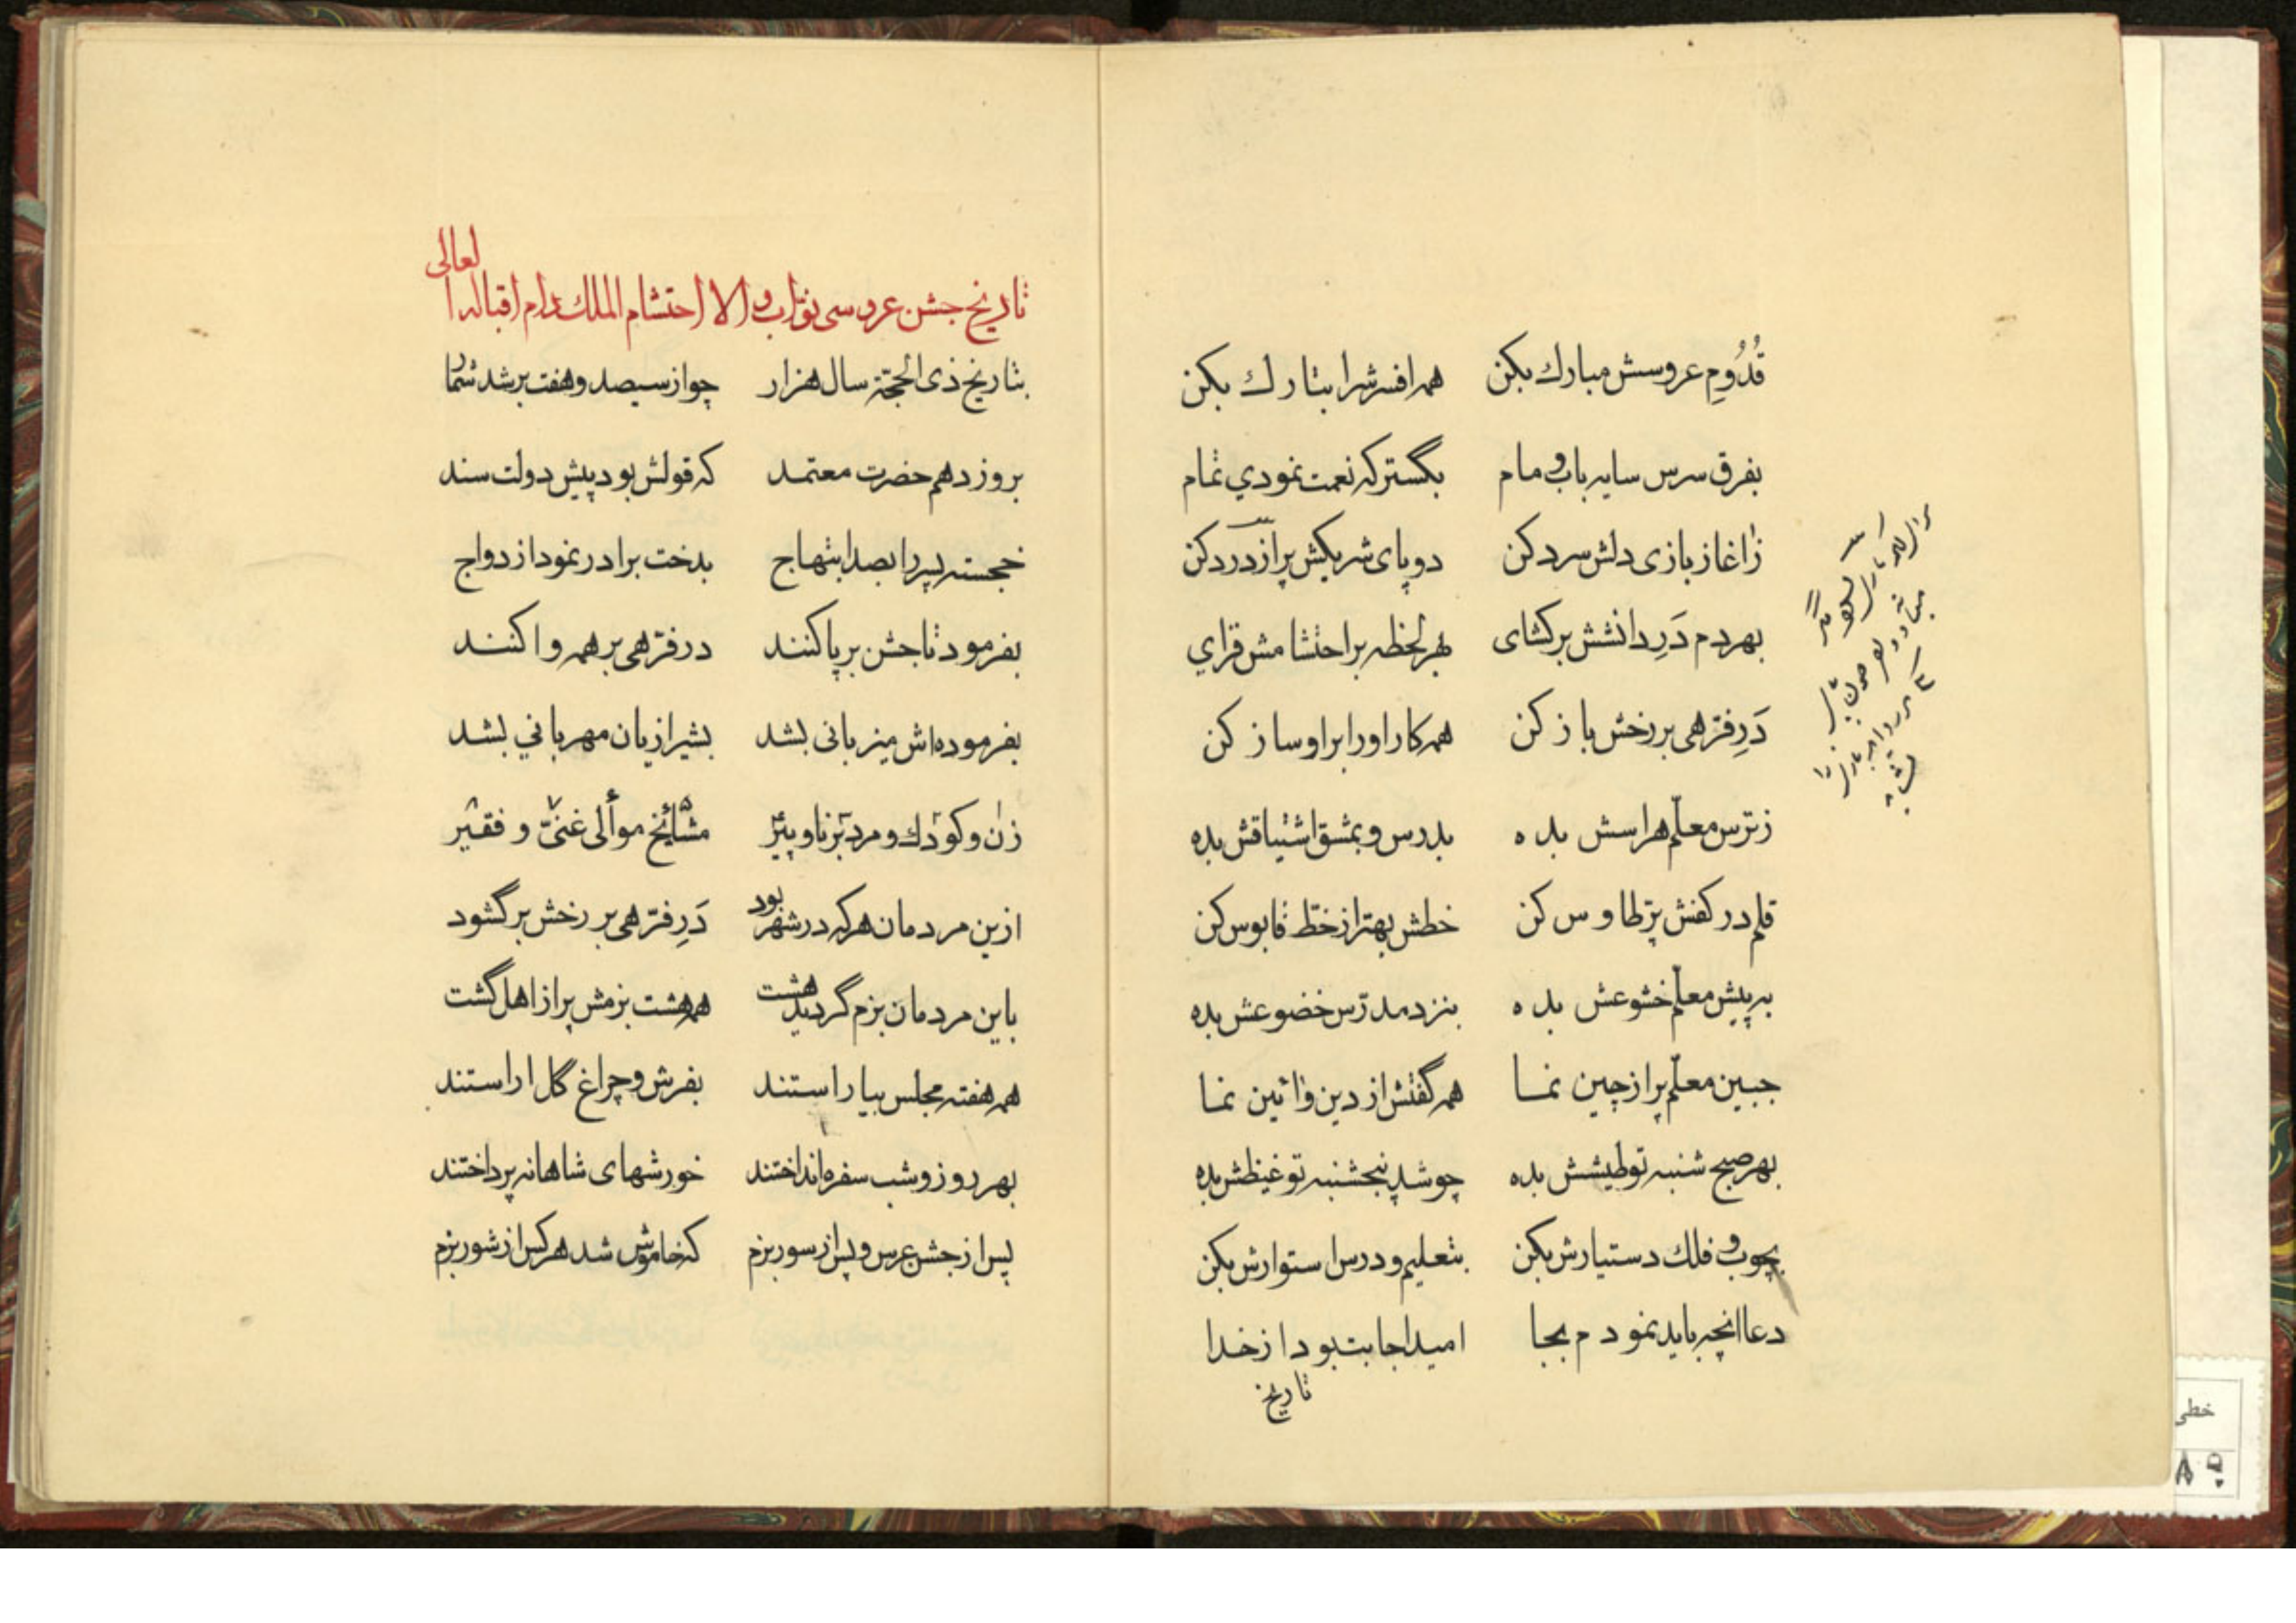 قُدُومِ عروسش مبارك بكن همه افسرش را بتارك بكن
بفرق سرس سايه باب و مام بگستر كه نعمت نمودي تمام
زاغاز بازى دلش سرد كن دو پاى شريكش پر از درد كن
بهر دم دَرِ دانشش بر كشاى بهر لحظه بر احتشامش فزاي
دَرِ فرّهى بر رخش باز كن همه كار او را بر او ساز كن
ز ترس معلّم هراسش بده بدرس و بمشق اشتياقش بده
قلم در كفش پرّ طاوس كن خطش بهتر از خطّ قابوس كن
به پيش معلّم خشوعش بده بنزد مدرّس خضوعش بده
جبين معلّم پر از چين نما همه گفتش از دين و ائين نما
بهر صبح شنبه تو طيشش بده چو شد پنجشنبه تو غيظش بده
بچوب و فلك دستيارش بكن بتعليم و درس استوارش بكن
دعا انچه بايد نمودم بجا اميد اجابت بود از خدا
تاريخ
تاريخ جشن عروسى نوّاب والا احتشام الملك دام اقباله العالى
بتاريخ ذى الحجّة سال هزار چو از سيصد و هفت بر شد شمار
بروز دهم حضرت معتمد كه قولش بود پيش دولت سند
خجسته پسر را بصد ابتهاج بدخت برادر نمود ازدواج
بفرمود تا جشن بر پا كنند در فرّهى بر همه وا كنند
بفرموده اش ميزبانى بشد بشيرازيان مهرباني بشد
زن و كودك و مرد برنا و پير مشائخ موالى غنىّ و فقير
از ين مردمان هر كه در شهر بود دَرِ فرّهى بر رخش بر گشود
باين مردمان بزم گرديد هشت همه هشت بزمش پر از اهل گشت
همه هفته مجلس بياراستند بفرش و چراغ گل اراستند
بهر روز و شب سفره انداختند خورشهاى شاهانه پرداختند
پس از جشن عرس و پس از سور بزم كه خاموش شد هر كس از شور بزم
خطى